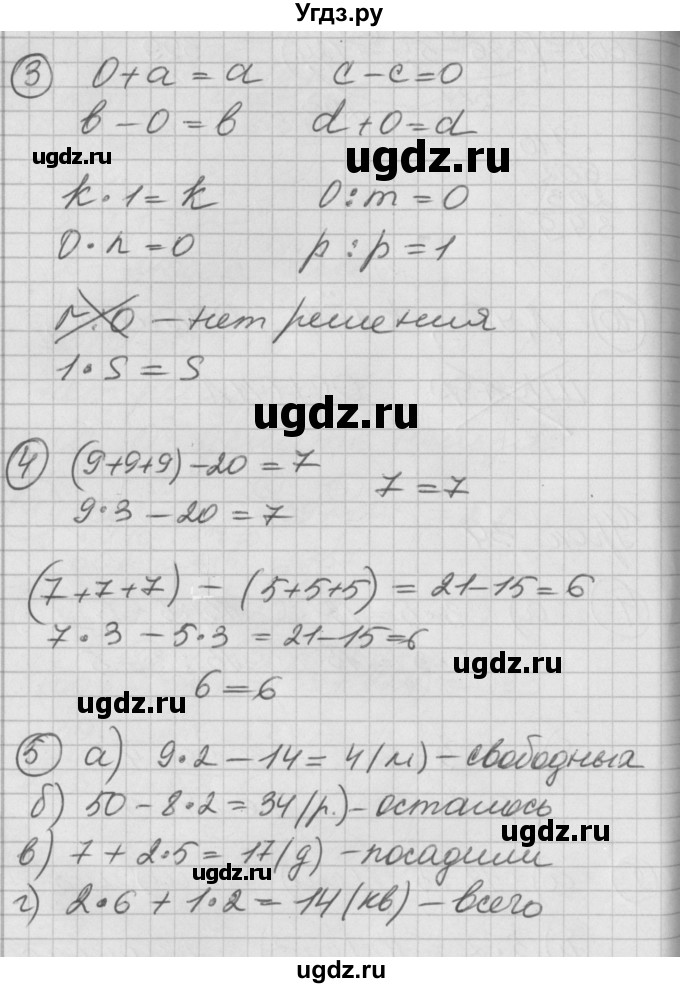 Угдз.ру
③ 0+a=a c-c=0
в-0=в d+0=d
ugdz.ru ugdz.ru
k·1=k 0:m=0
0·n=0 p:p=1
r:0 – нет решения
1·s=s
ugdz.ru
④ (9+9+9)-20=7 7=7
9·3-20=7
(7+7+7)-(5+5+5)=21-15=6
7·3-5·3=21-15=6
ugdz.ru
6=6
ugdz.ru
⑤ а) 9·2-14=4(м)-свободных
б) 50-8·2=34(р.)-осталось
ugdz.ru
в) 7+2·5=17(д)-посадили
ugdz.ru
г) 2·6+1·2=14(кв)-всего
ugdz.ru